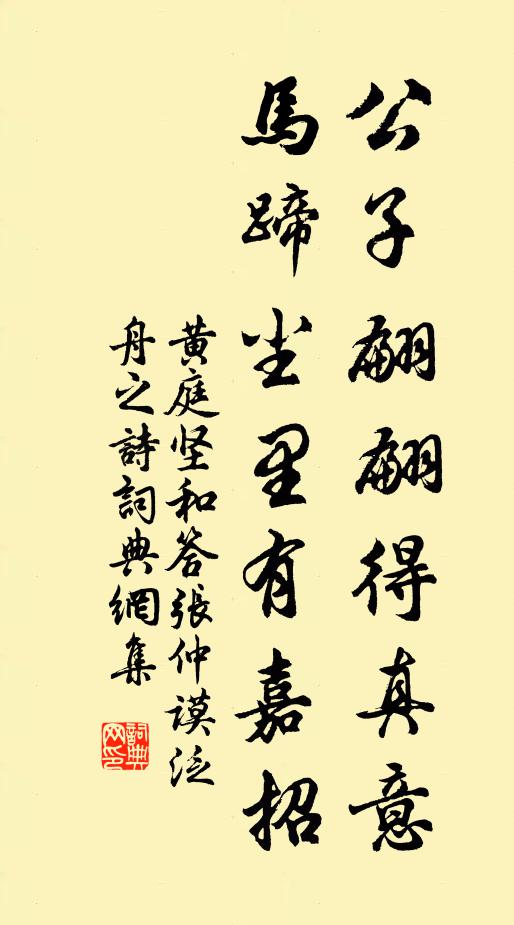 公子翩翩得真意
馬蹄尘里有嘉招
黄庭坚和答張仲谟泛
舟之詩詞典網集
詞典
网印